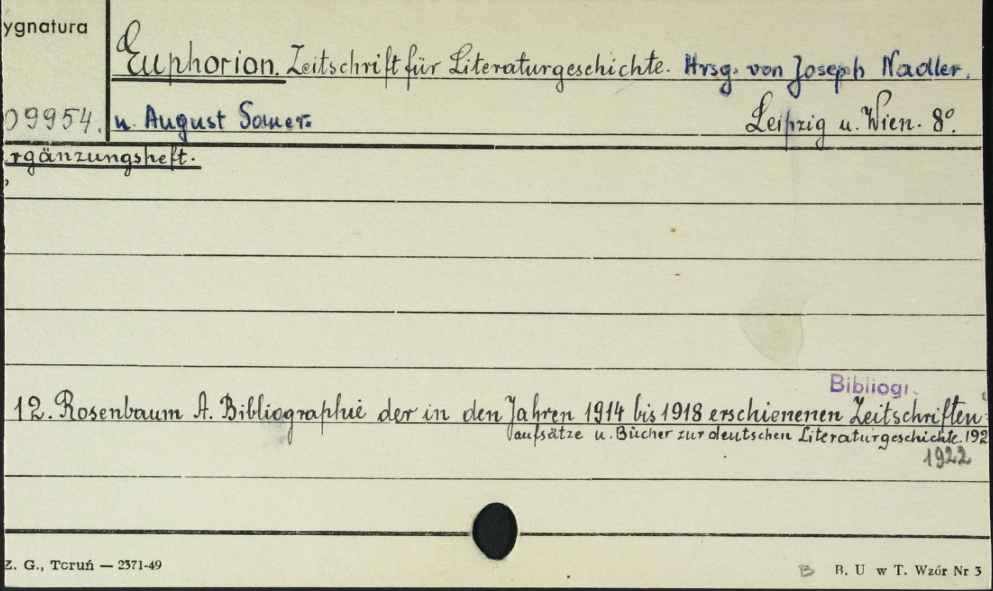 ygnatura
Euphorion. Zeitschrift für Literaturgeschichte. Hrsg. von Joseph Nadler.
09954. u. August Sauer. Leipzig u. Wien. 8°.
rgänzungsheft.
Bibliogr.
12. Rosenbaum A. Bibliographie der in den Jahren 1914 bis 1918 erschienenen Zeitschriften-
aufsätze u. Bücher zur deutschen Literaturgeschichte. 192
1922
Z. G., Toruń — 2371-49 B B. U w T. Wzór Nr 3